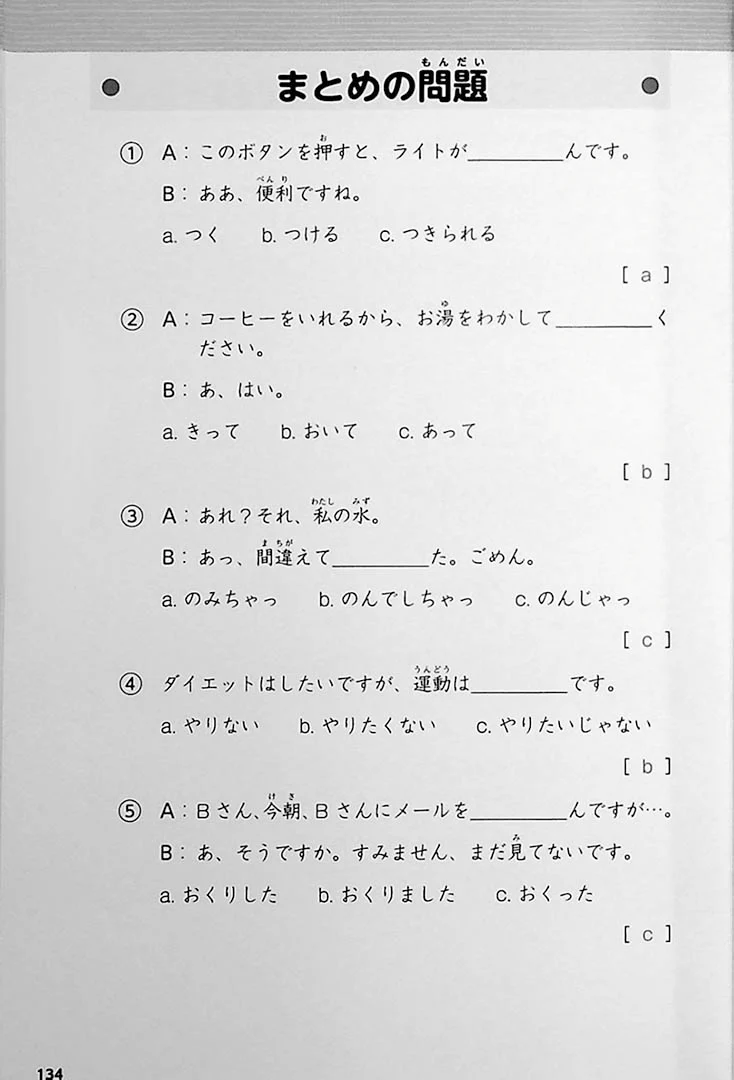 まとめの問題
もんだい
① A：このボタンを押すと、ライトが__________んです。
お
B：ああ、便利ですね。
べんり
a. つく b. つける c. つきられる
[ a ]
② A：コーヒーをいれるから、お湯をわかして__________く
ゆ
ださい。
B：あ、はい。
a. きって b. おいて c. あって
[ b ]
③ A：あれ？それ、私の水。
わたし みず
B：あっ、間違えて__________た。ごめん。
まちが
a. のみちゃっ b. のんでしちゃっ c. のんじゃっ
[ c ]
④ ダイエットはしたいですが、運動は__________です。
うんどう
a. やりない b. やりたくない c. やりたいじゃない
[ b ]
⑤ A：Bさん、今朝、Bさんにメールを__________んですが…。
けさ
B：あ、そうですか。すみません、まだ見てないです。
み
a. おくりした b. おくりました c. おくった
[ c ]
134